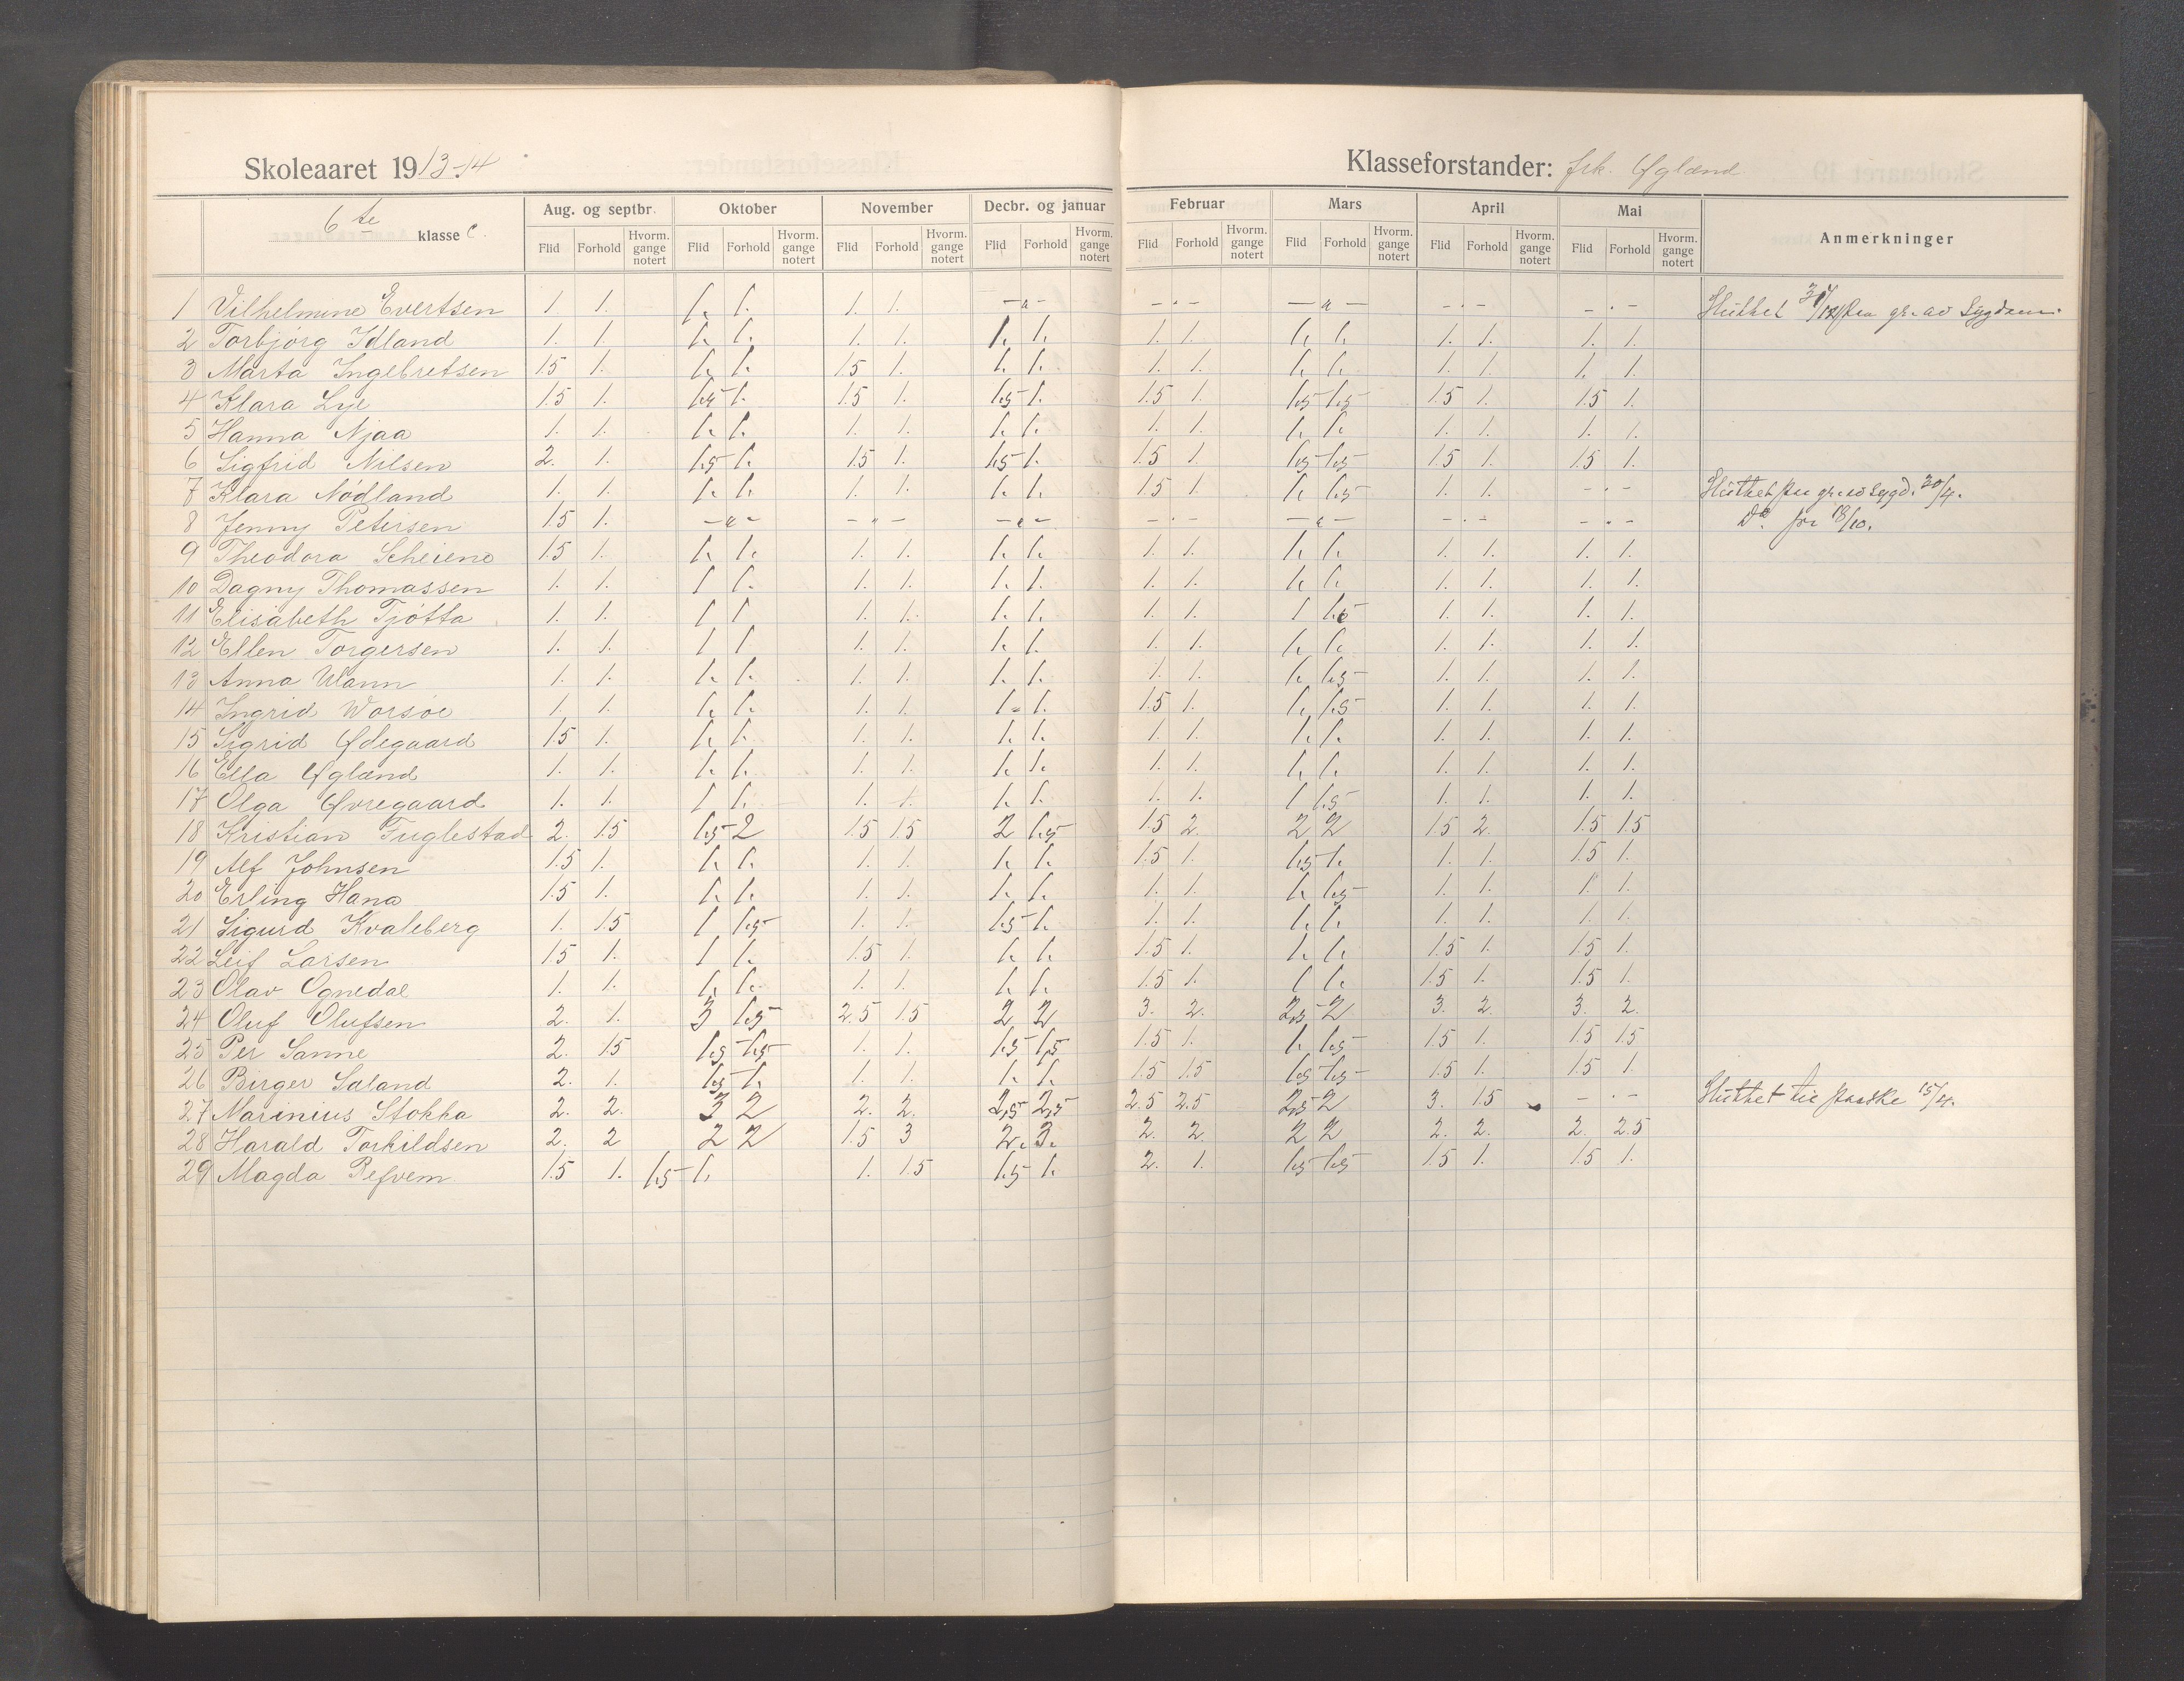 Skoleaaret 1913-14
Klasseforstander: frk. Øglænd
6te klasse C.
Aug. og septbr. Oktober November Decbr. og januar Februar Mars April Mai Anmerkninger
Flid Forhold Hvorm. gange notert Flid Forhold Hvorm. gange notert Flid Forhold Hvorm. gange notert Flid Forhold Hvorm. gange notert Flid Forhold Hvorm. gange notert Flid Forhold Hvorm. gange notert Flid Forhold Hvorm. gange notert Flid Forhold Hvorm. gange notert
1 Vilhelmine Evertsen 1. 1. 1. 1. 1. 1. -"- -"- -"- -"- -"- Sluttet paa gr. av Sygdom.
2 Torbjørg Idland 1. 1. 1. 1. 1. 1. 1. 1. 1. 1. 1. 1. 1. 1. 1. 1.
3 Marta Ingebretsen 1.5 1. 1. 1. 1.5 1. 1. 1. 1. 1. 1. 1. 1. 1. 1. 1.
4 Klara Lye 1.5 1. 1.5 1. 1.5 1. 1.5 1. 1.5 1. 1.5 1.5 1.5 1. 1.5 1.
5 Hanna Njaa 1. 1. 1. 1. 1. 1. 1. 1. 1. 1. 1. 1. 1. 1. 1. 1.
6 Sigfrid Nilsen 2. 1. 1.5 1. 1.5 1. 1.5 1. 1.5 1. 1.5 1.5 1.5 1. 1.5 1.
7 Klara Nødland 1. 1. 1. 1. 1. 1. 1. 1. 1.5 1. 1. 1.5 1. 1. -"- Sluttet paa gr. av Sygd. 30/4.
8 Jenny Petersen 1.5 1. -"- -"- -"- -"- -"- -"- -"- Do. fra 18/10.
9 Theodora Scheiene 1.5 1. 1. 1. 1. 1. 1. 1. 1. 1. 1. 1. 1. 1. 1. 1.
10 Dagny Thomassen 1. 1. 1 1. 1. 1. 1. 1. 1. 1. 1. 1. 1. 1. 1. 1.
11 Elisabeth Tjøtta 1. 1. 1 1 1. 1. 1. 1. 1. 1. 1 1.5 1. 1. 1. 1.
12 Ellen Torgersen 1. 1. 1 1 1. 1. 1. 1. 1. 1. 1. 1. 1. 1. 1. 1.
13 Anna Wann 1. 1. 1. 1. 1. 1. 1. 1. 1. 1. 1. 1.5 1. 1. 1. 1.
14 Ingrid Worsøe 1. 1. 1. 1. 1. 1. 1. 1. 1.5 1. 1. 1.5 1. 1. 1. 1.
15 Sigrid Ødegaard 1.5 1. 1. 1. 1. 1. 1. 1. 1. 1. 1. 1. 1. 1. 1. 1.
16 Ella Øglænd 1. 1. 1. 1. 1. 1. 1. 1. 1. 1. 1. 1. 1. 1. 1. 1.
17 Olga Øvregaard 1. 1. 1 1. 1. 1. 1. 1. 1. 1. 1 1.5 1. 1. 1. 1.
18 Kristian Fuglestad 2. 1.5 1.5 2 1.5 1.5 2 1.5 1.5 2. 2 2 1.5 2. 1.5 1.5
19 Alf Johnsen 1.5 1. 1. 1. 1. 1. 1. 1. 1.5 1. 1.5 1. 1. 1. 1.5 1.
20 Erling Hana 1.5 1. 1. 1. 1. 1. 1. 1. 1. 1. 1. 1.5 1. 1. 1. 1.
21 Sigurd Kvaleberg 1. 1.5 1 1.5 1. 1. 1.5 1. 1. 1. 1. 1. 1. 1. 1. 1.
22 Leif Larsen 1.5 1. 1 1. 1.5 1. 1. 1. 1.5 1. 1. 1. 1.5 1. 1.5 1.
23 Olav Ognedal 1. 1. 1. 1. 1. 1. 1. 1. 1.5 1. 1 1. 1.5 1. 1.5 1.
24 Oluf Olufsen 2. 1. 3 1.5 2.5 1.5 2 2 3. 2. 2.5 2 3. 2. 3. 2.
25 Per Sanne 2. 1.5 1.5 1.5 1. 1. 1.5 1.5 1.5 1. 1. 1.5 1.5 1. 1.5 1.5
26 Birger Søland 2. 1. 1.5 1. 1. 1. 1. 1. 1.5 1.5 1.5 1.5 1.5 1. 1.5 1.
27 Marinius Stokka 2. 2. 3 2 2. 2. 2,5 2,5 2.5 2.5 2.5 2 3. 1.5 -"- Sluttet til paaske 15/4.
28 Harald Torkildsen 2. 2 2 2 1.5 3 2. 3. 2. 2. 2 2 2. 2. 2. 2.5
29 Magda Refvem 1.5 1. 1.5 1. 1. 1.5 1.5 1. 2. 1. 1.5 1.5 1.5 1. 1.5 1.